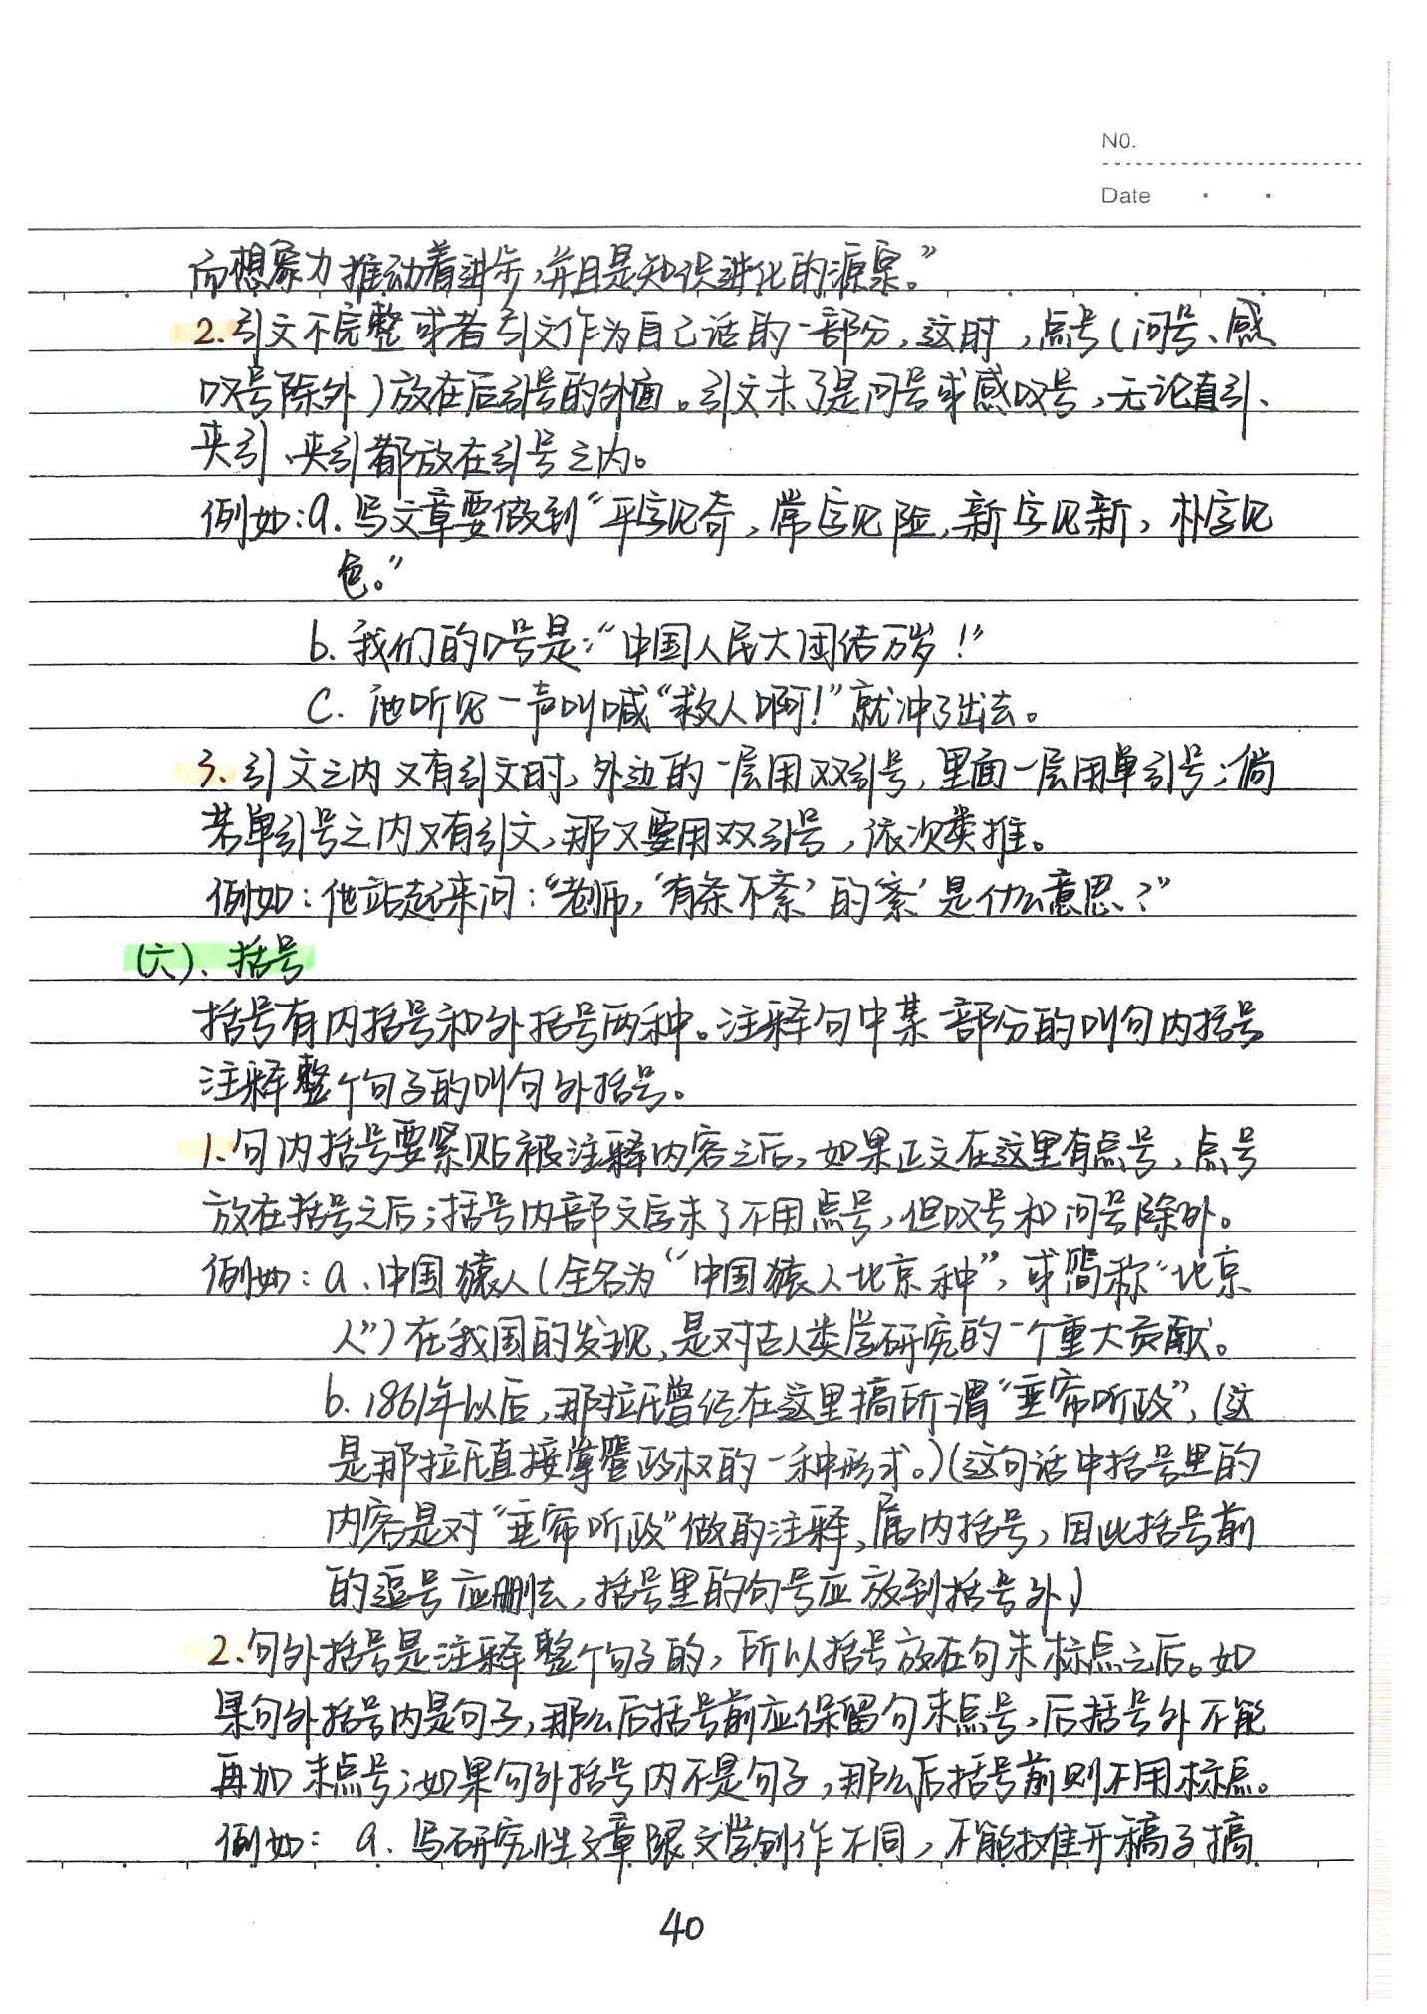 NO.
Date
而想象力推动着进步,并且是知识进化的源泉。”
2.引文不完整或者引文作为自己话的一部分,这时,点号(问号、感
叹号除外)放在后引号的外面。引文末了是问号或感叹号,无论直引、
夹引、夹引都放在引号之内。
例如:a.写文章要做到“平字见奇,常字见险,新字见新,朴字见
色。”
b.我们的口号是:“中国人民大团结万岁!”
C.他听见一声叫喊“救人啊!”就冲了出去。
3.引文之内又有引文时,外边的一层用双引号,里面一层用单引号;倘
若单引号之内又有引文,那又要用双引号,依次类推。
例如:他站起来问:“老师,‘有条不紊’的‘紊’是什么意思?”
(六)、括号
括号有内括号和外括号两种。注释句中某部分的叫句内括号
注释整个句子的叫句外括号。
1.句内括号要紧贴被注释内容之后,如果正文在这里有点号,点号
放在括号之后;括号内部文字末了不用点号,但叹号和问号除外。
例如:a.中国猿人(全名为“中国猿人北京种”,或简称“北京
人”)在我国的发现,是对古人类学研究的一个重大贡献。
b.1861年以后,那拉氏曾经在这里搞所谓“垂帘听政”,(这
是那拉氏直接掌管政权的一种形式。)(这句话中括号里的
内容是对“垂帘听政”做的注释,属内括号,因此括号前
的逗号应删去,括号里的句号应放到括号外)
2.句外括号是注释整个句子的,所以括号放在句末标点之后。如
果句外括号内是句子,那么后括号前应保留句末点号,后括号外不能
再加末点号;如果句外括号内不是句子,那么后括号前则不用标点。
例如:a.写研究性文章跟文学创作不同,不能摊开稿子搞
40